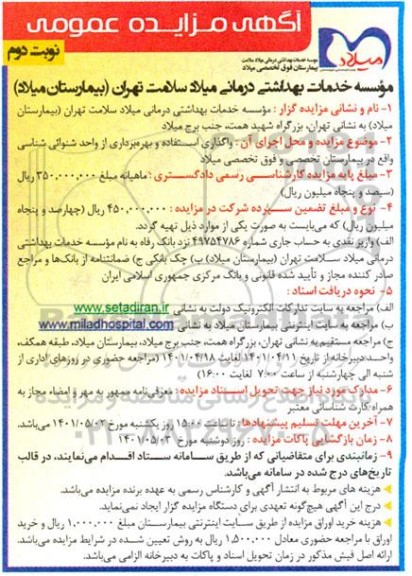 آگهی مزایده عمومی
نوبت دوم
میلاد
موسسه خدمات بهداشتی درمانی میلاد سلامت
بیمارستان فوق تخصصی میلاد
مؤسسه خدمات بهداشتی درمانی میلاد سلامت تهران (بیمارستان میلاد)
۱- نام و نشانی مزایده گزار : مؤسسه خدمات بهداشتی درمانی میلاد سلامت تهران (بیمارستان
میلاد) به نشانی تهران، بزرگراه شهید همت، جنب برج میلاد
۲- موضوع مزایده و محل اجرای آن : واگذاری استفاده و بهره‌برداری از واحد شنوائی شناسی
واقع در بیمارستان تخصصی و فوق تخصصی میلاد
۳- مبلغ پایه مزایده کارشناسی رسمی دادگستری : ماهیانه مبلغ ۳۵۰,۰۰۰,۰۰۰ ریال
(سیصد و پنجاه میلیون ریال)
۴- نوع و مبلغ تضمین سپرده شرکت در مزایده : ۴۵۰,۰۰۰,۰۰۰ ریال (چهارصد و پنجاه
میلیون ریال) که می‌بایست به صورت یکی از موارد ذیل تهیه گردد.
الف) واریز نقدی به حساب جاری شماره ۴۹۷۵۴۷۸۶ نزد بانک رفاه به نام مؤسسه خدمات بهداشتی
درمانی میلاد سلامت تهران (بیمارستان میلاد) ب) چک بانکی ج) ضمانتنامه از بانک‌ها و مراجع
صادر کننده مجاز و تأیید شده قانونی و بانک مرکزی جمهوری اسلامی ایران
۵- نحوه دریافت اسناد :
الف) مراجعه به سایت تدارکات الکترونیک دولت به نشانی www.setadiran.ir
ب) مراجعه به سایت اینترنتی بیمارستان میلاد به نشانی www.miladhospital.com
ج) مراجعه مستقیم به نشانی تهران، بزرگراه همت، جنب برج میلاد، بیمارستان میلاد، طبقه همکف،
واحد دبیرخانه از تاریخ ۱۴۰۱/۰۴/۱۱ لغایت ۱۴۰۱/۰۴/۱۸ (مراجعه حضوری در روزهای اداری از
شنبه الی چهارشنبه از ساعت ۷:۰۰ لغایت ۱۶:۰۰)
۶- مدارک مورد نیاز جهت تحویل اسناد مزایده : معرفی‌نامه ممهور به مهر و امضاء مجاز به
همراه کارت شناسائی معتبر
۷- آخرین مهلت تسلیم پیشنهادها: تا ساعت ۱۵:۰۰ روز یکشنبه مورخ ۱۴۰۱/۰۵/۰۲ می‌باشد.
۸- زمان بازگشایی پاکات مزایده : روز دوشنبه مورخ ۱۴۰۱/۰۵/۰۳
۹- زمانبندی برای متقاضیانی که از طریق سامانه ستاد اقدام می‌نمایند، در قالب
تاریخ‌های درج شده در سامانه می‌باشد.
هزینه های مربوط به انتشار آگهی و کارشناس رسمی به عهده برنده مزایده می‌باشد.
درج این آگهی هیچ‌گونه تعهدی برای دستگاه مزایده گزار ایجاد نمی‌نماید.
هزینه خرید اوراق مزایده از طریق سایت اینترنتی بیمارستان مبلغ ۱,۰۰۰,۰۰۰ ریال و خرید
اوراق با مراجعه حضوری معادل ۱,۵۰۰,۰۰۰ ریال به روش تعیین شده در شرایط مزایده می‌باشد.
ارائه اصل فیش مذکور در زمان تحویل اسناد و پاکات به دبیرخانه الزامی می‌باشد.